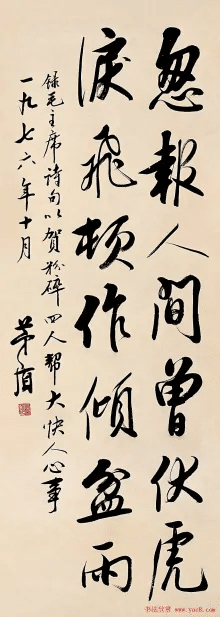 忽報人間曾伏虎
淚飛頓作傾盆雨
錄毛主席詩句以賀粉碎四人幫大快人心事
一九七六年十月
茅盾
书法欣赏 www.yac8.com